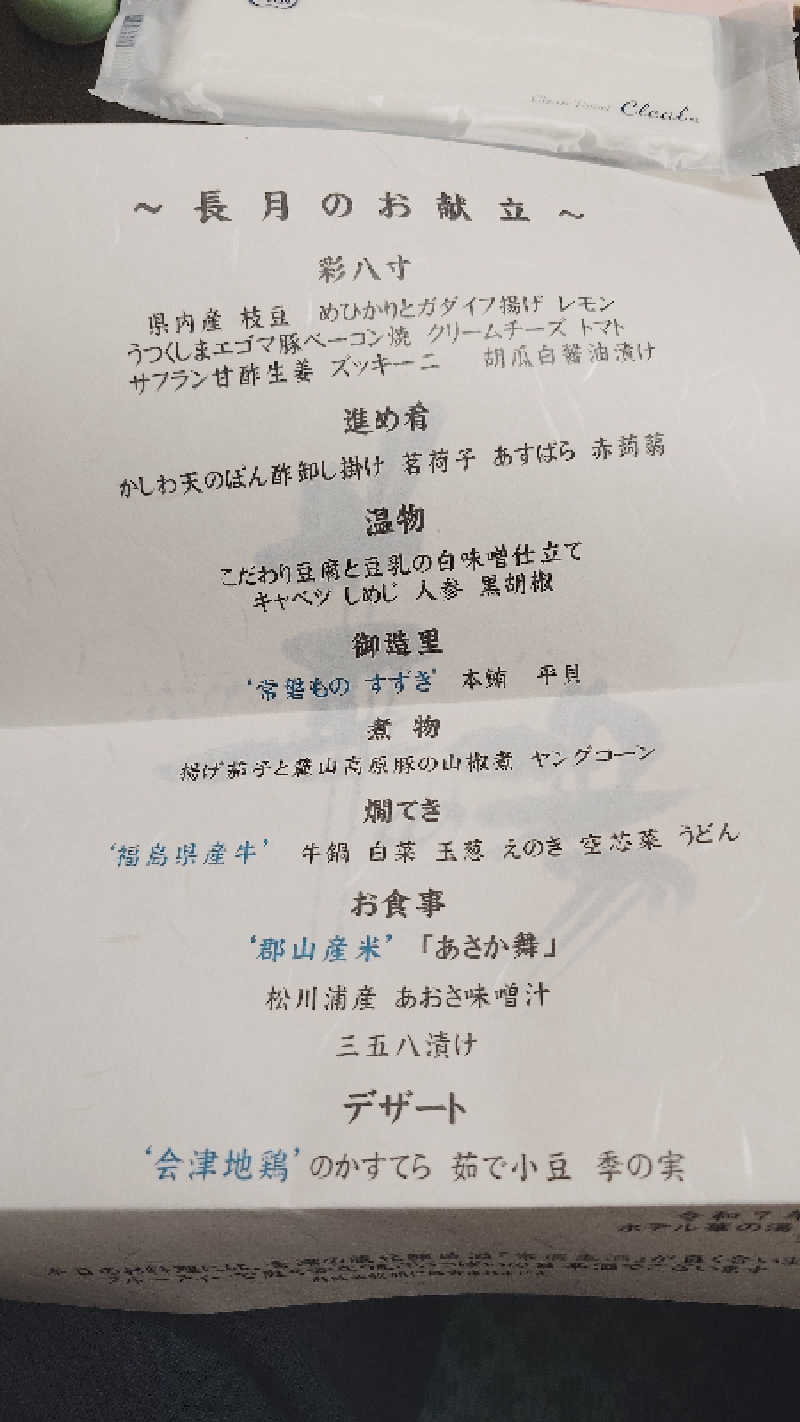 Clean Towel Clealn
～長月のお献立～
彩八寸
県内産 枝豆 めひかりとガダイフ揚げ レモン
うつくしまエゴマ豚ベーコン焼 クリームチーズ トマト
サフラン甘酢生姜 ズッキーニ 胡瓜白醤油漬け
進め肴
かしわ天のぽん酢卸し掛け 茗荷子 あすぱら 赤蒟蒻
温物
こだわり豆腐と豆乳の白味噌仕立て
キャベツ しめじ 人参 黒胡椒
御造里
‘常磐もの すずき’ 本鮪 平貝
煮物
揚げ茄子と麓山高原豚の山椒煮 ヤングコーン
燗てき
‘福島県産牛’ 牛鍋 白菜 玉葱 えのき 空芯菜 うどん
お食事
‘郡山産米’「あさか舞」
松川浦産 あおさ味噌汁
三五八漬け
デザート
‘会津地鶏’のかすてら 茹で小豆 季の実
令和7年
ホテル華の湯